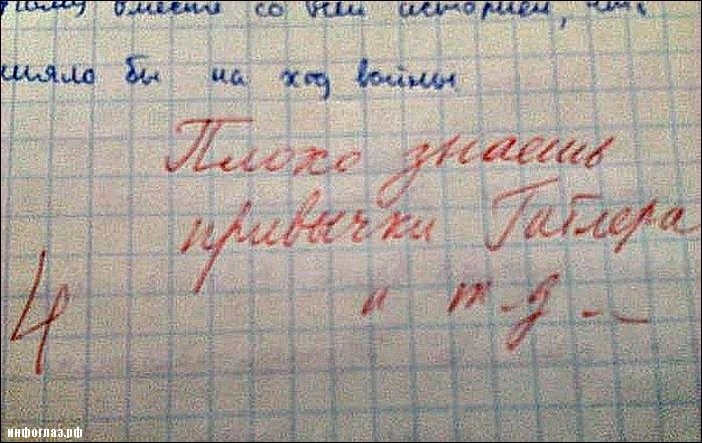 вместе со всей историей,
бы на ход войны
Плохо знаешь
привычки Гитлера
4 и т.д...
инфоглаз.рф